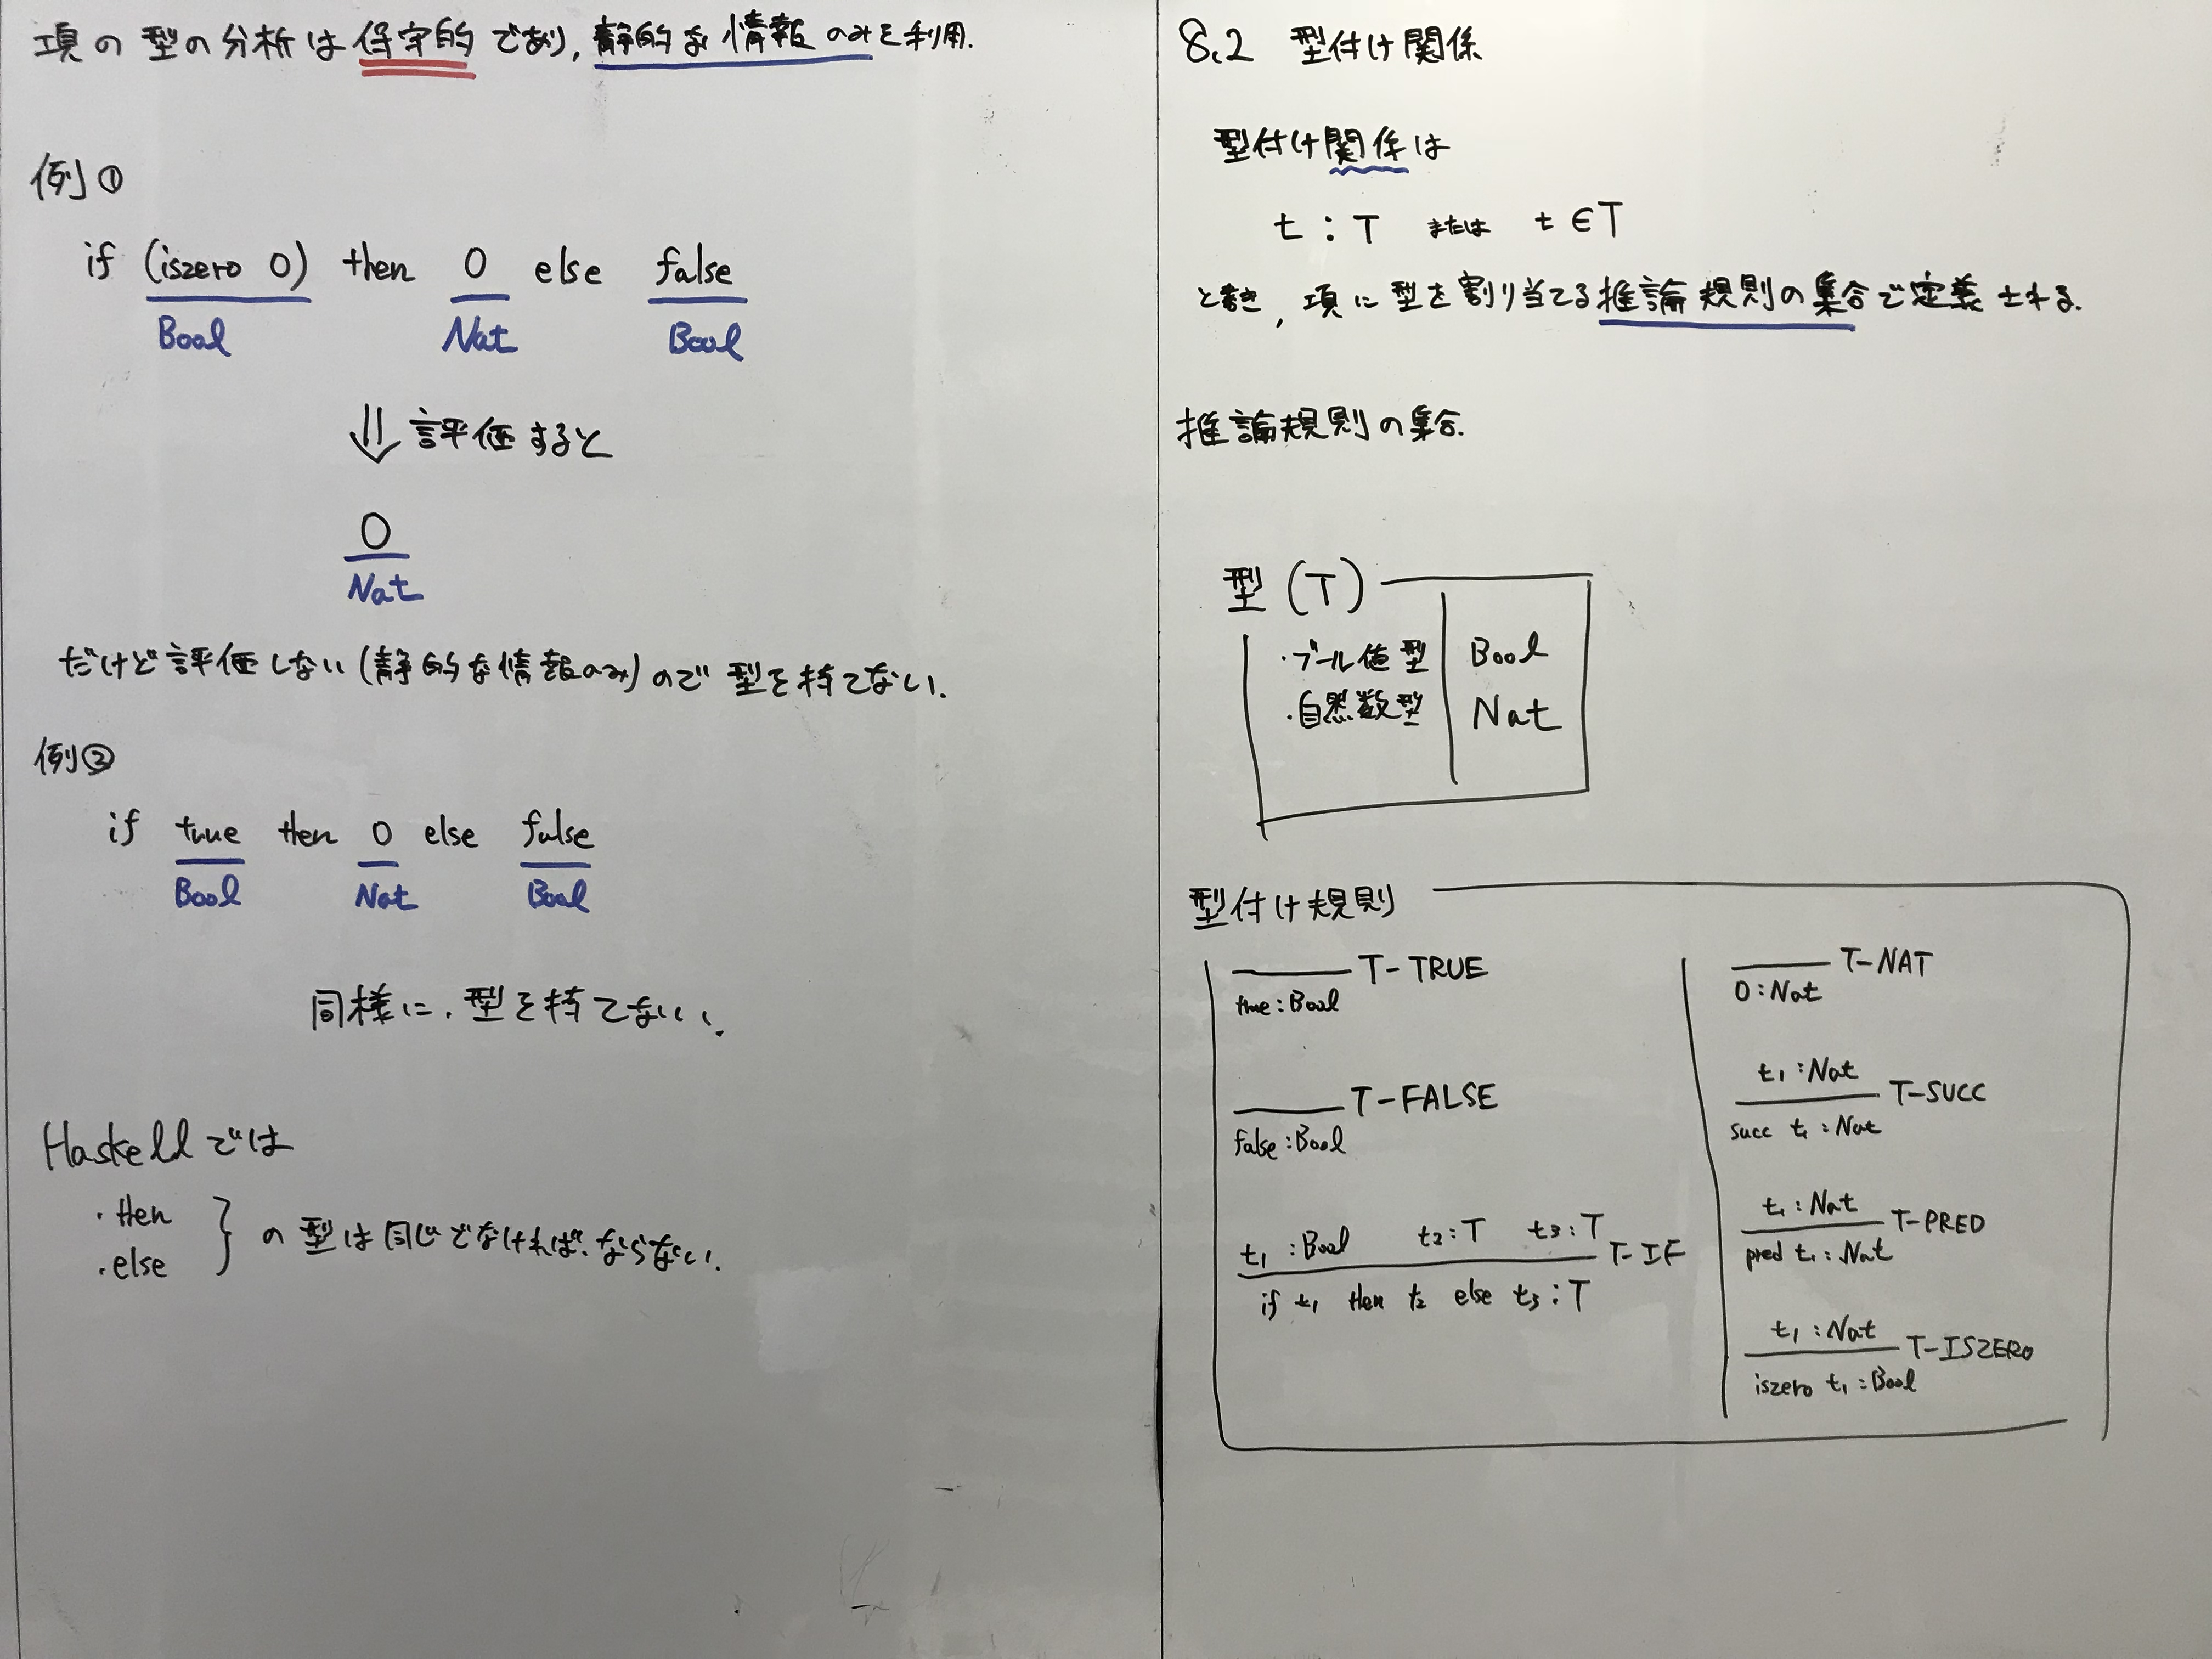 項の型の分析は保守的であり,静的な情報のみを利用.
例①
if (iszero 0) then 0 else false
Bool Nat Bool
⇓ 評価すると
0
Nat
だけど評価しない(静的な情報のみ)ので型を持てない.
例②
if true then 0 else false
Bool Nat Bool
同様に,型を持てない.
Haskellでは
・then
・else
} の型は同じでなければならない.
8.2 型付け関係
型付け関係は
t : T または t ∈ T
と書き,項に型を割り当てる推論規則の集合で定義される.
推論規則の集合.
型 (T)
・ブール値型 Bool
・自然数型 Nat
型付け規則
T-TRUE
true : Bool
T-FALSE
false : Bool
t₁ : Bool t₂ : T t₃ : T
T-IF
if t₁ then t₂ else t₃ : T
T-NAT
0 : Nat
t₁ : Nat
T-SUCC
succ t₁ : Nat
t₁ : Nat
T-PRED
pred t₁ : Nat
t₁ : Nat
T-ISZERO
iszero t₁ : Bool